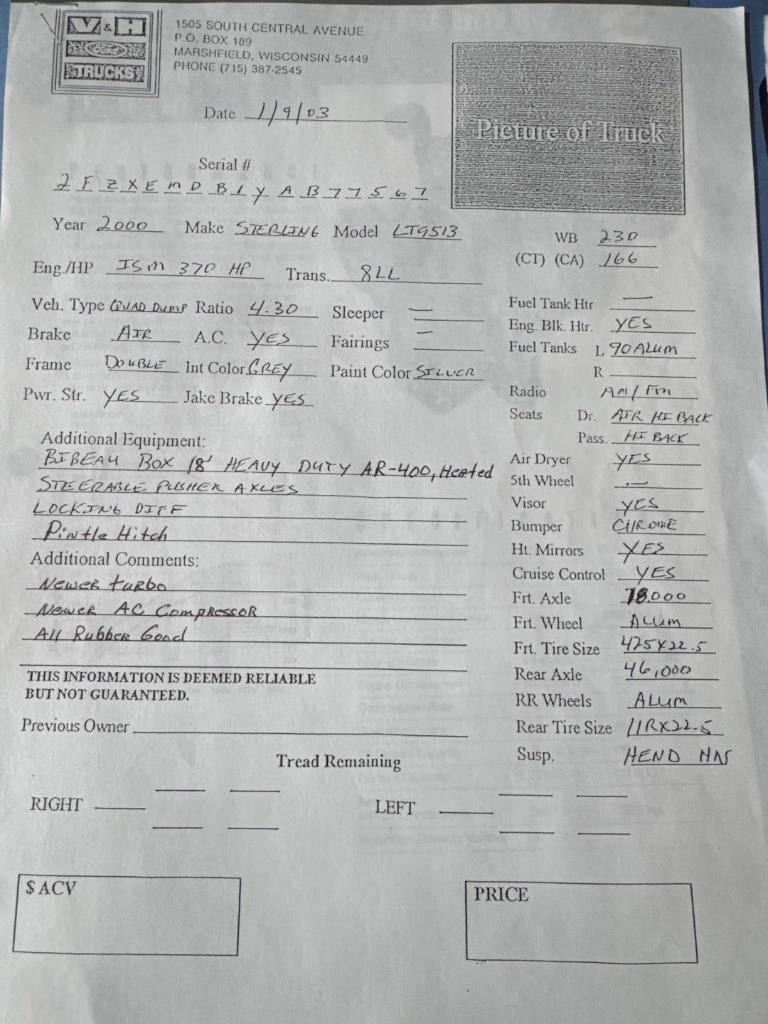 V & H
Ford
TRUCKS
1505 SOUTH CENTRAL AVENUE
P.O. BOX 189
MARSHFIELD, WISCONSIN 54449
PHONE (715) 387-2545
Date 1/9/03
Picture of Truck
Serial #
2FZXEMDBLYAB77567
Year 2000 Make STERLING Model LT9513
WB 230
(CT) (CA) 166
Eng./HP ISM 370 HP Trans. 8LL
Veh. Type QUAD DUMP Ratio 4.30 Sleeper —
Brake AIR A.C. YES Fairings —
Frame DOUBLE Int Color GREY Paint Color SILVER
Pwr. Str. YES Jake Brake YES
Fuel Tank Htr —
Eng. Blk. Htr. YES
Fuel Tanks L 90 ALUM
R
Radio AM/FM
Seats Dr. AIR HI BACK
Pass. HI BACK
Air Dryer YES
5th Wheel —
Visor YES
Bumper CHROME
Ht. Mirrors YES
Cruise Control YES
Frt. Axle 18.000
Frt. Wheel ALUM
Frt. Tire Size 425X22.5
Rear Axle 46,000
RR Wheels ALUM
Rear Tire Size 11RX22.5
Susp. HEND
Additional Equipment:
BIBEAU BOX 18' HEAVY DUTY AR-400, Heated
STEERABLE PUSHER AXLES
LOCKING DIFF
Pintle Hitch
Additional Comments:
Newer turbo
Newer AC Compressor
All Rubber Good
THIS INFORMATION IS DEEMED RELIABLE
BUT NOT GUARANTEED.
Previous Owner
Tread Remaining
RIGHT LEFT
$ ACV PRICE